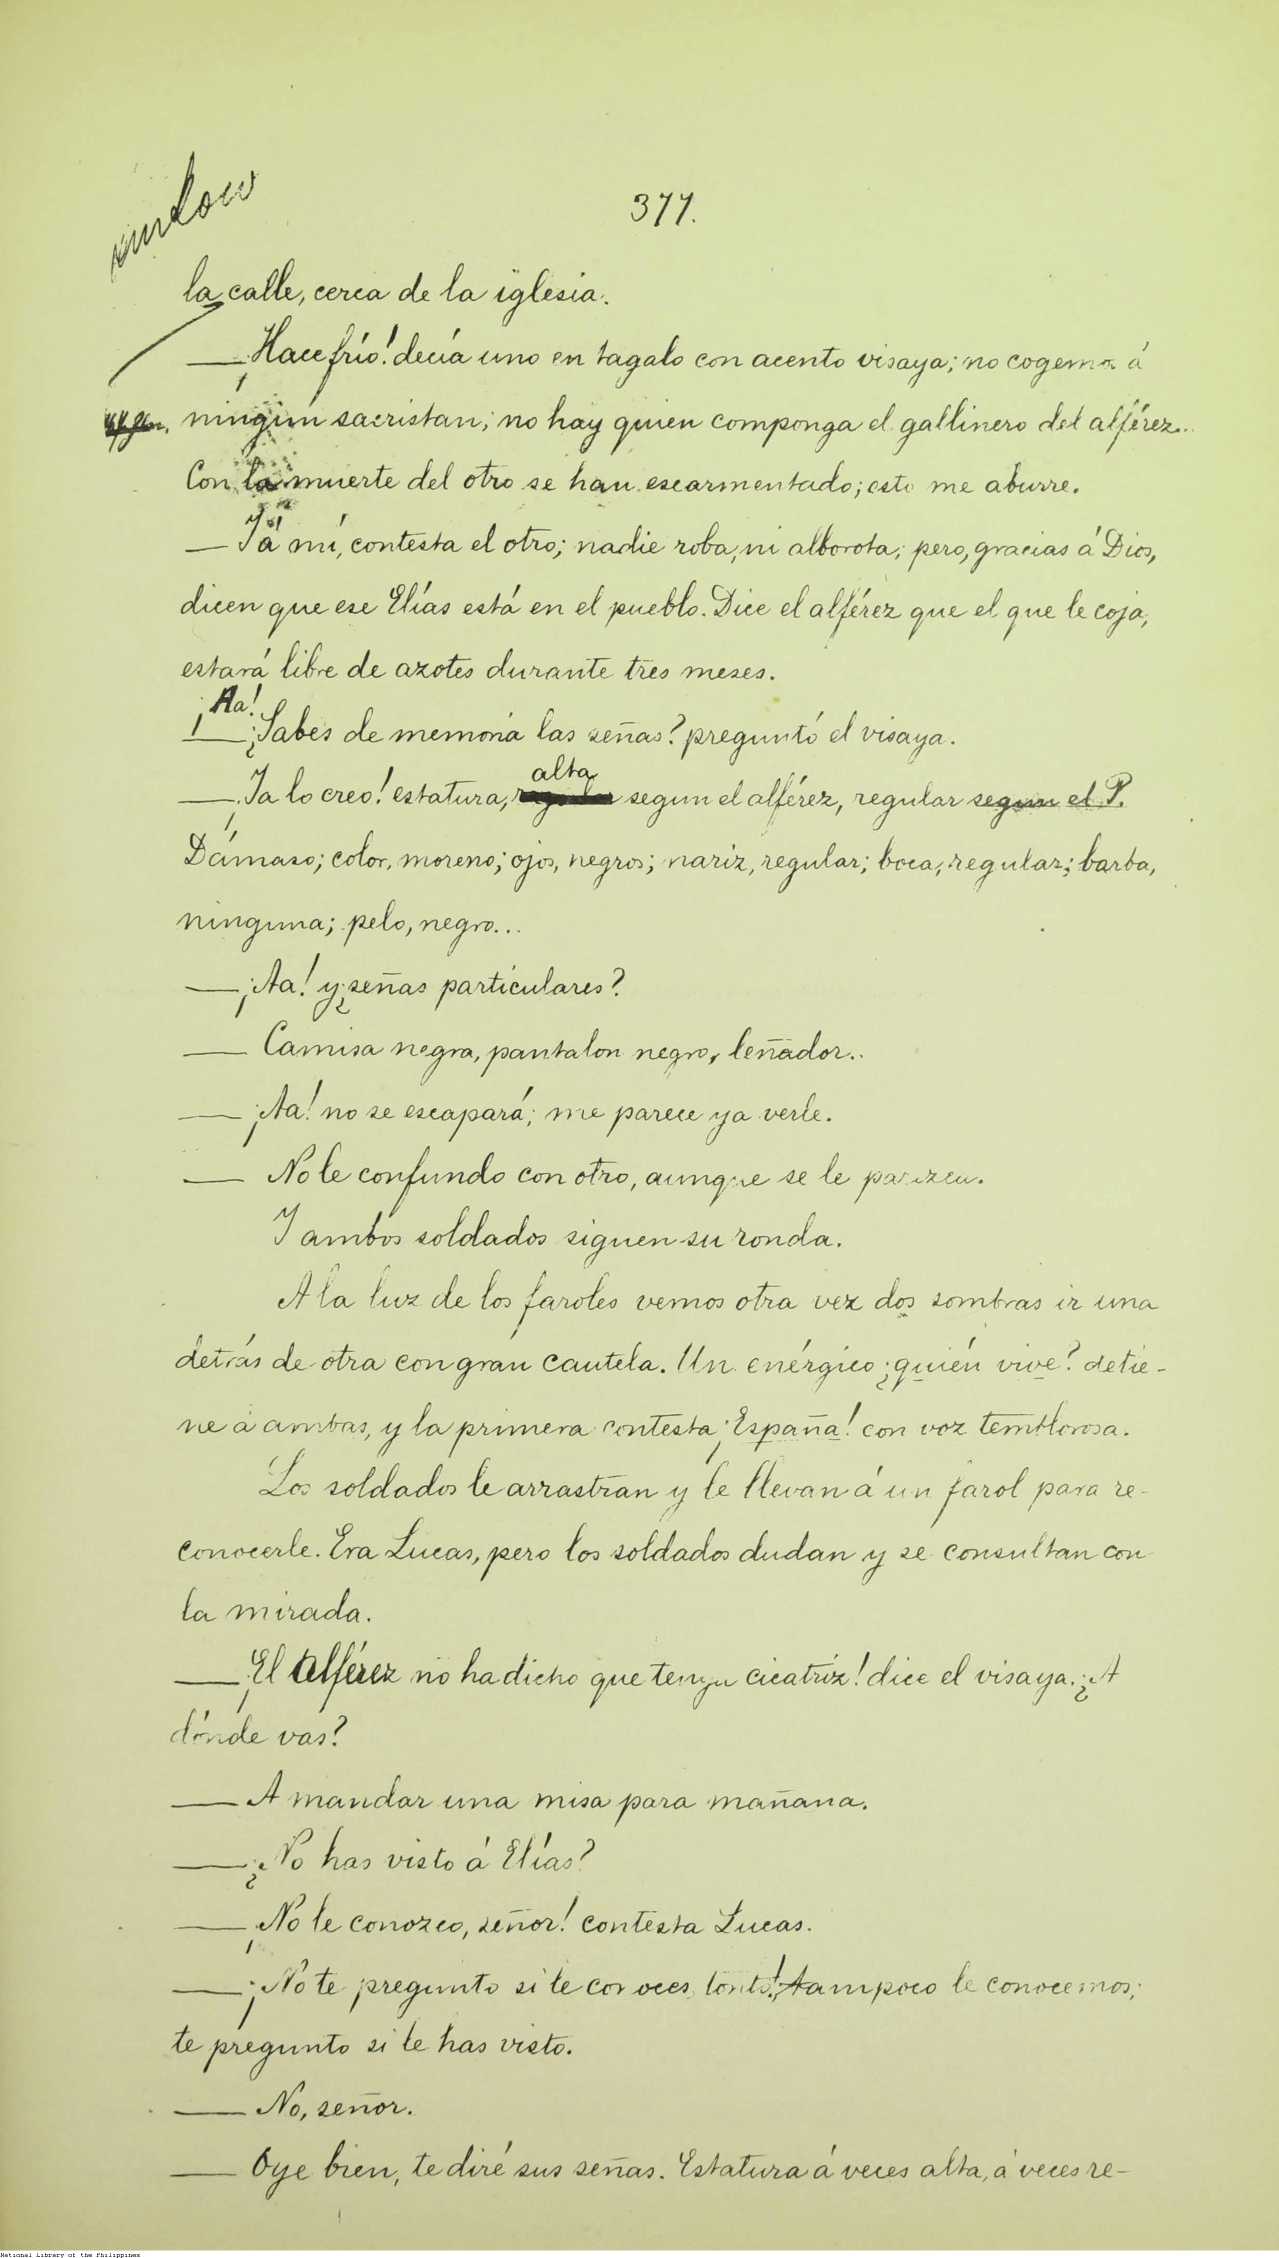 377.
la calle, cerca de la iglesia.
— ¡Hace frío! decía uno en tagalo con acento visaya; no cogemos á
ningún sacristan; no hay quien componga el gallinero del alférez..
Con la muerte del otro se han escarmentado; esto me aburre.
— Y á mí, contesta el otro; nadie roba, ni alborota; pero, gracias á Dios,
dicen que ese Elías está en el pueblo. Dice el alférez que el que le coja,
estará libre de azotes durante tres meses.
¡Aa!
— ¿Sabes de memoria las señas? preguntó el visaya.
alta
— ¡Ya lo creo! estatura, segun el alférez, regular segun el P.
Dámaso; color, moreno; ojos, negros; nariz, regular; boca, regular; barba,
ninguna; pelo, negro...
— ¡Aa! y ¿señas particulares?
— Camisa negra, pantalon negro, leñador..
— ¡Aa! no se escapará; me parece ya verle.
— No le confundo con otro, aunque se le parezcan.
Y ambos soldados siguen su ronda.
A la luz de los faroles vemos otra vez dos sombras ir una
detrás de otra con gran cautela. Un enérgico ¿quién vive? detie-
ne á ambas, y la primera contesta ¡España! con voz temblorosa.
Los soldados le arrastran y le llevan á un farol para re-
conocerle. Era Lucas, pero los soldados dudan y se consultan con
la mirada.
— ¡El alférez no ha dicho que tenga cicatriz! dice el visaya. ¿A
dónde vas?
— A mandar una misa para mañana.
— ¿No has visto á Elías?
— ¡No le conozco, señor! contesta Lucas.
— ¡No te pregunto si le conoces, tonto! tampoco le conocemos;
te pregunto si le has visto.
— No, señor.
— Oye bien, te diré sus señas. Estatura á veces alta, á veces re-
National Library of the Philippines